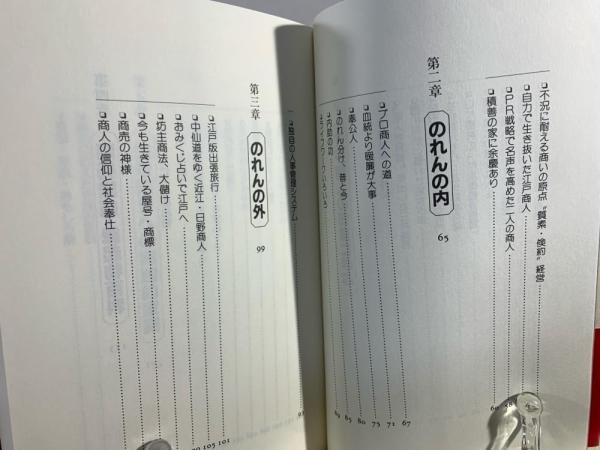 □不況に耐える商いの原点“質素・倹約”経営
□自力で生き抜いた江戸商人
□PR戦略で名声を高めた二人の商人
□積善の家に余慶あり
第二章 のれんの内 65
□プロ商人への道 67
□血統より暖簾が大事 71
□奉公人 73
□のれん分け、昔と今
□内助の功
□ライフワークいろいろ
□独自の人事管理システム
第三章 のれんの外 99
□江戸版出張旅行 101
□中仙道をゆく近江・日野商人 103
□おみくじ占いで江戸へ
□坊主商法、大儲け
□今も生きている屋号・商標
□商売の神様
□商人の信仰と社会奉仕